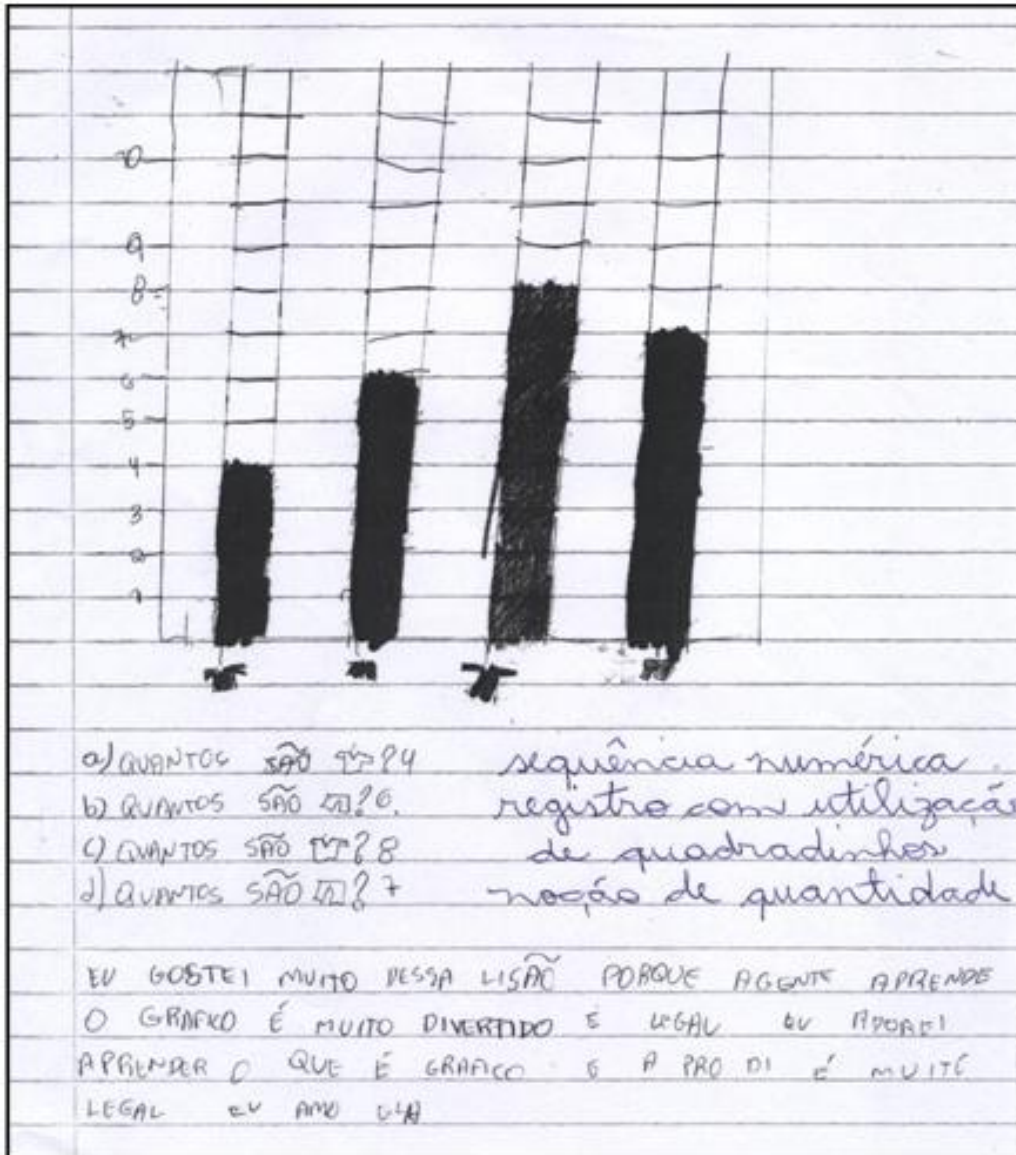 10
9
8
7
6
5
4
3
2
1
a) QUANTOS SÃO ? 4
b) QUANTOS SÃO ? 6.
c) QUANTOS SÃO ? 8
d) QUANTOS SÃO ? 7
sequência numérica.
registro com utilização
de quadradinhos
noção de quantidade
EU GOSTEI MUITO DESSA LISÃO PORQUE AGENTE APRENDE
O GRAFICO É MUITO DIVERTIDO E LEGAL EU ADOREI
APRENDER O QUE É GRAFICO E A PRO DI É MUITE
LEGAL EU AMO ELA